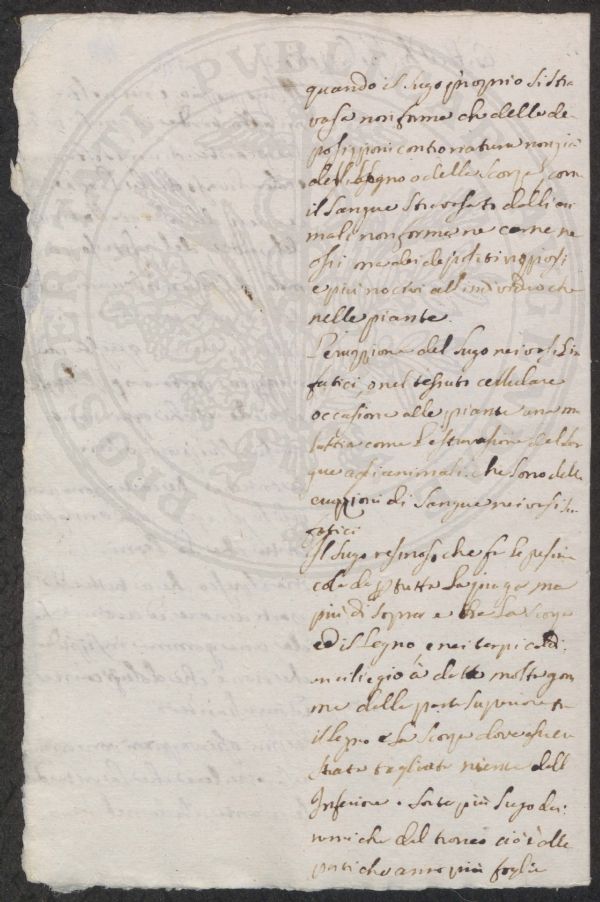 quando il sugo proprio si stra
vasa non forma che delle de
posizioni contro natura non già
del legno o della scorza, come
il sangue stravasato dalli ani
mali non forma ne carne ne
ossi ma dei depositi
e più nocivi all'individuo che
nelle piante.
L'eruzzione del sugo nei vasi lin
fatici, o nel tessuto cellulare
occasiona alle piante una ma
lattia come l'estravasione del san
gue agli animali, che sono delle
eruzzioni di sangue nei vasi lin
fatici
Il sugo resinoso, che fa le
cola da per tutta la piaga ma
più di sopra e tra la scorza
ed il legno, e nei tempi caldi
un ciliegio à dato molta gom
ma dalla parte superiore tra
il legno e la scorza dove
stata tagliata niente dall
Inferiore. sorte più sugo dai
rami che dal tronco cioè dalle
parti che anno più foglie